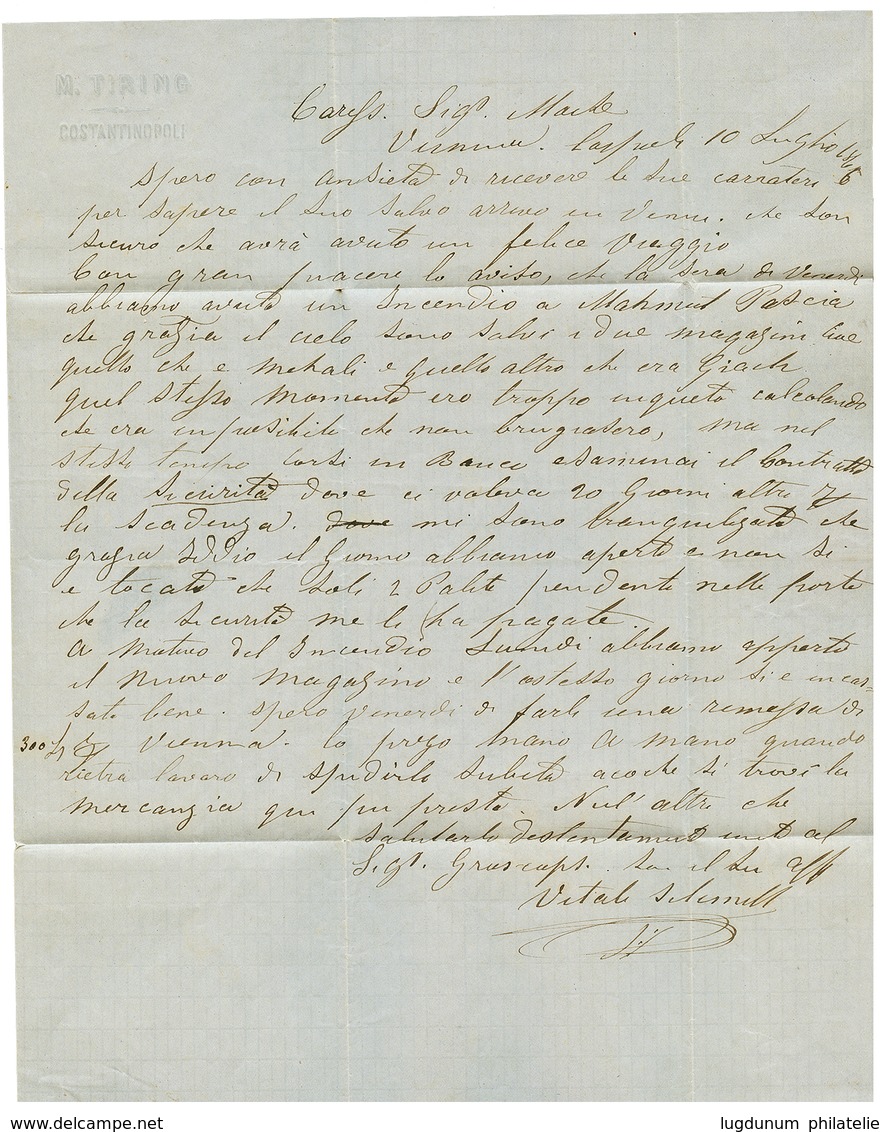 M. TIRING
COSTANTINOPOLI
Sigr.
Vienna. 10 Luglio
Spero con ansietà di ricevere le sue carrateri
per sapere il suo salvo arrivo in Vienna. che son
sicuro che avrà avuto un felice viaggio
Con gran piacere lo aviso, che la sera di Venerdi
abbiamo avuto un Incendio a Mahmud Pascia
che grazia il cielo sono salvi i due magazini
quello che e Mehali e quello altro che era
quel stesso momento ero troppo inqueto calcolando
che era inposibile che non brugiasero, ma nel
stesso tempo corsi in Banca esaminai il Contratto
della Sicurità dove ci voleva 20 Giorni altri
la scadenza. dove mi sono tranquilizato che
grazia Iddio il Giorno abbiamo aperto e non si
e tocato che soli 2 Palito pendente nelle porte
che la Securità me li ha pagate.
A motivo del Incendio Lunedi abbiamo apperto
il Nuovo Magazino e l'ostesso giorno si e incas-
sato bene. spero venerdi di farli una remessa di
300 Vienna. lo prego mano a mano quando
lavoro di spedirlo subito acoche si trovi la
mercanzia qui piu presto. Null'altro che
salutarlo unito al
Sigr. son il suo aff
Vitali